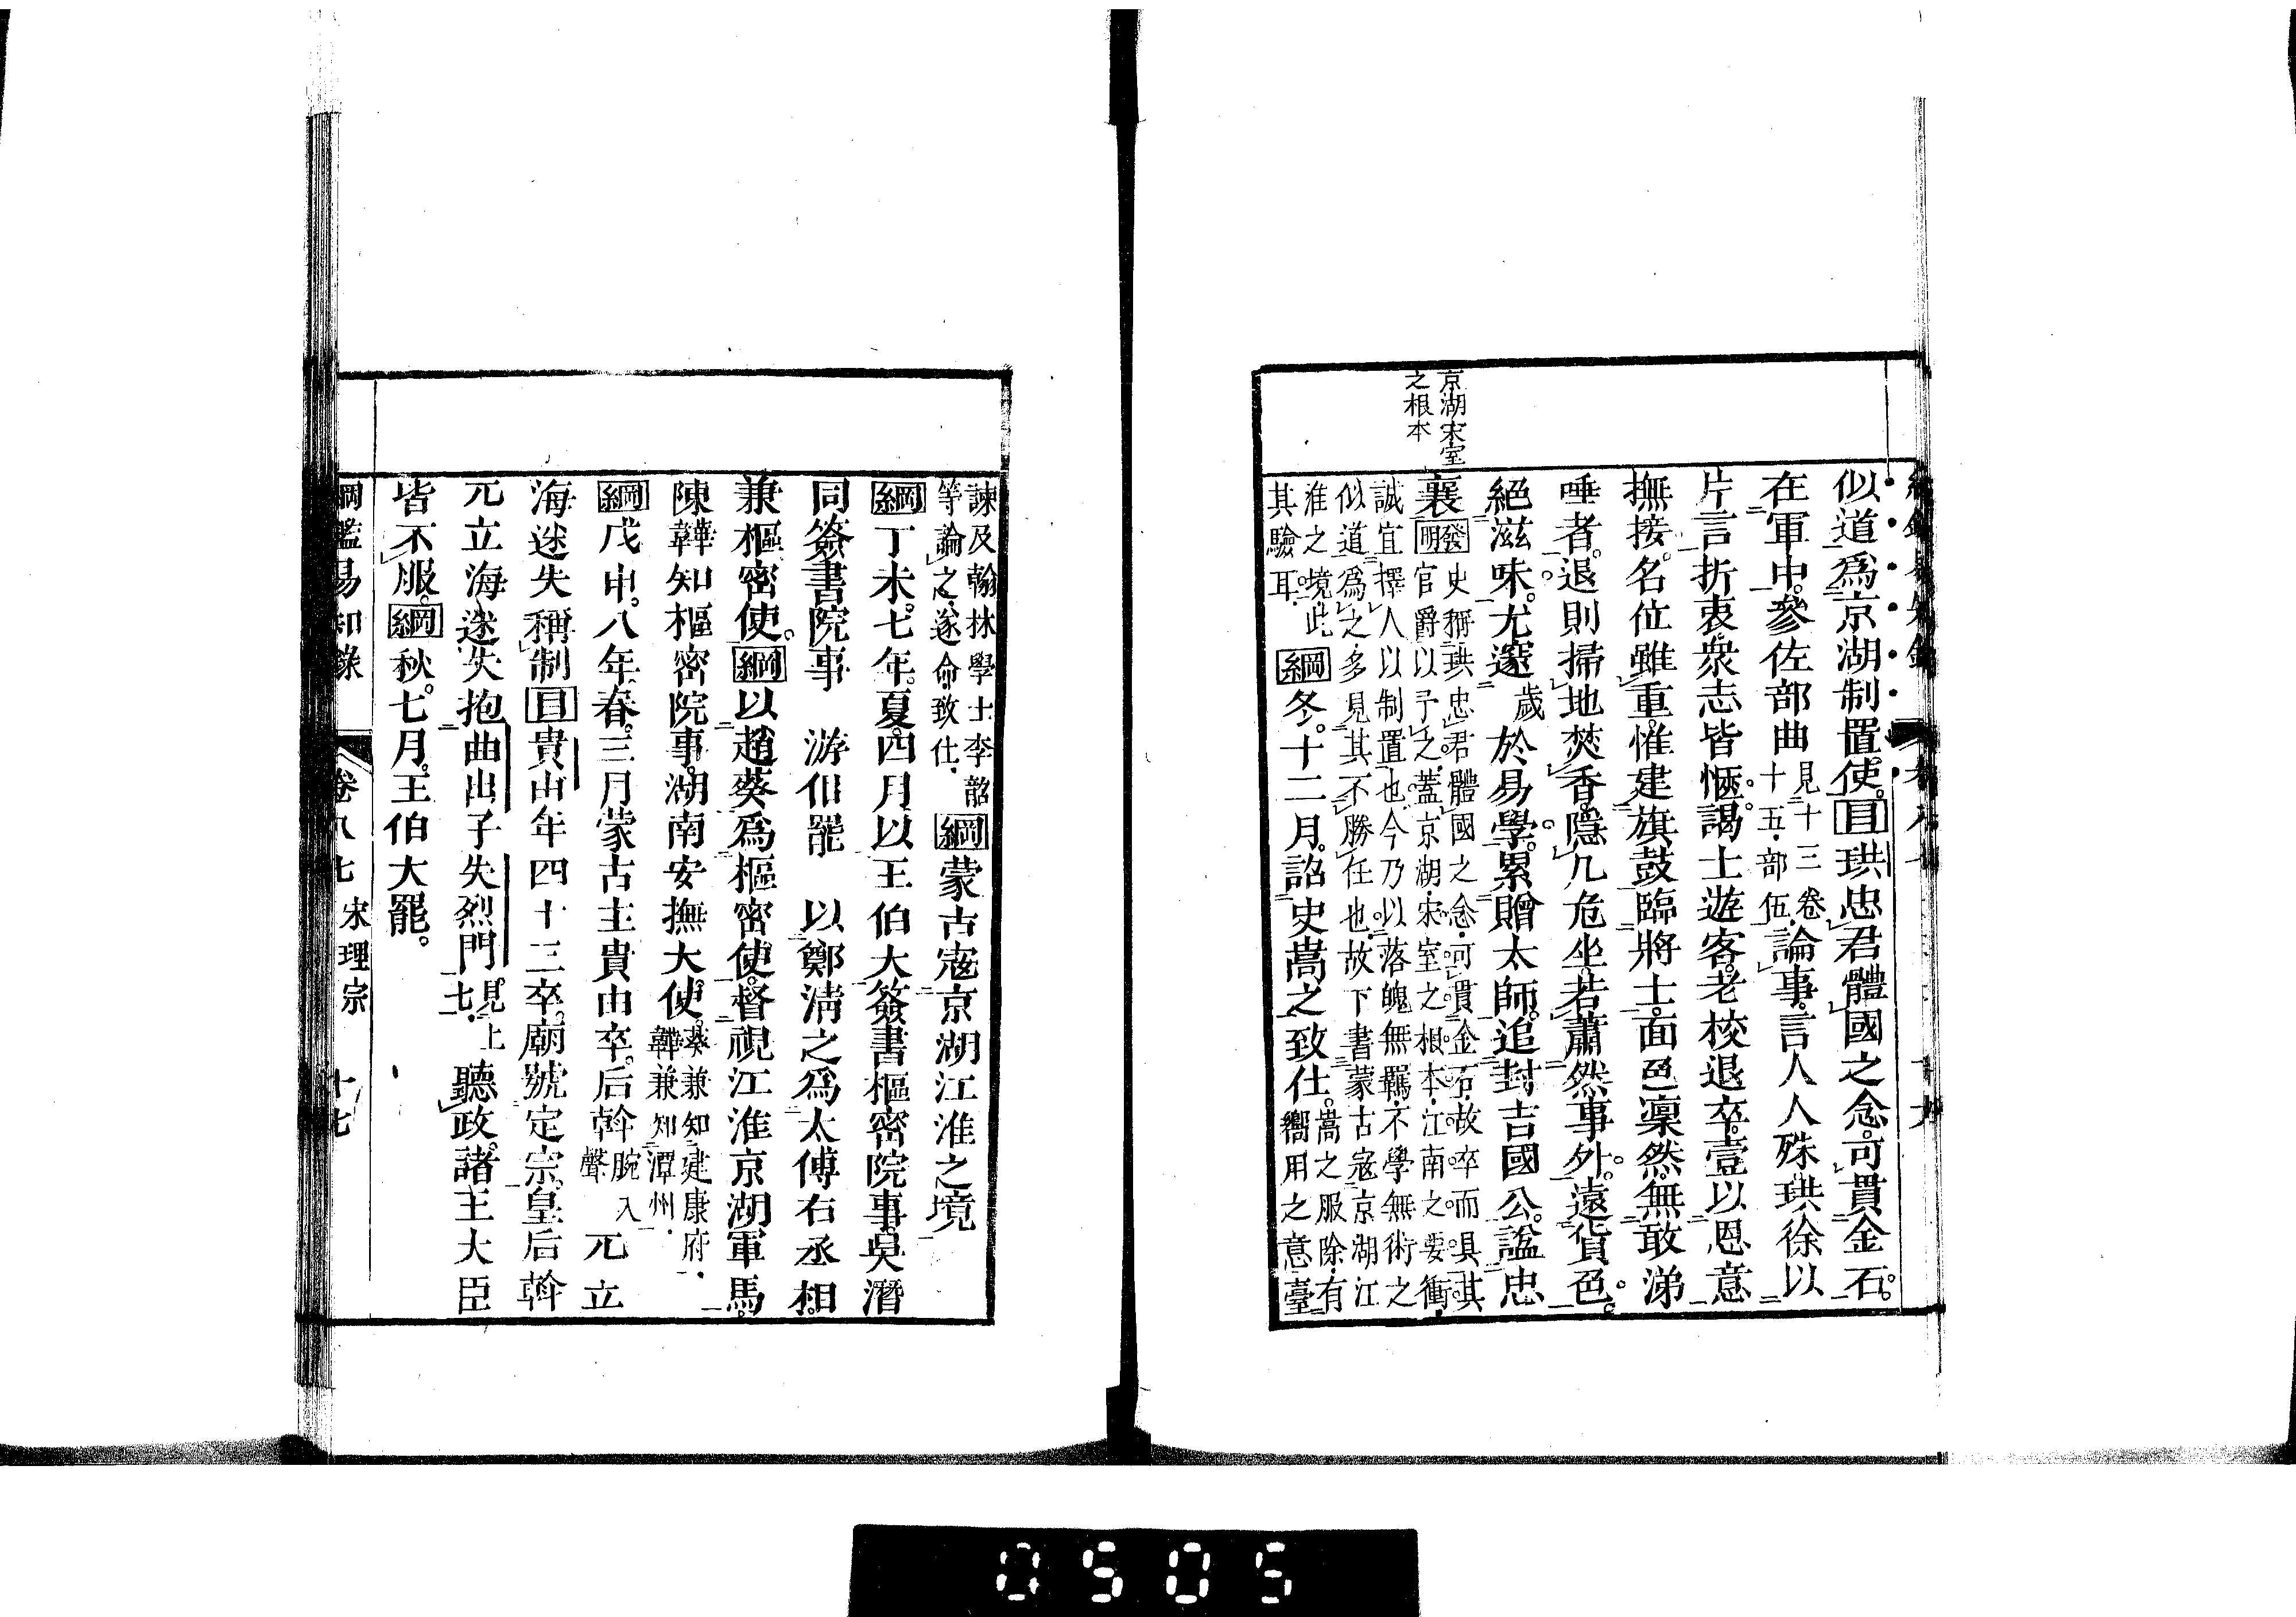 似道爲京湖制置使。目珙忠君體國之念。可貫金石。
在軍中。參佐部曲見十三卷十五.部伍.論事。言人人殊。珙徐以
片言折衷。衆志皆愜。謁士遊客。老校退卒。壹以恩意
撫接。名位雖重。惟建旗鼓臨將士。面色凜然。無敢涕
唾者。退則掃地焚香。隱几危坐。若蕭然事外。遠貨色。
絕滋味。尤邃歲於易學。累贈太師。追封吉國公。諡忠
京湖宋室之根本
襄發明史稱珙忠君體國之念.可貫金石.故卒而具其
官爵以予之.蓋京湖.宋室之根本.江南之要衝.
誠宜擇人以制置也.今乃以落魄無羈.不學無術之
似道爲之.多見其不勝任也.故下書蒙古寇京湖江
淮之境.此其驗耳.
綱冬。十二月。詔史嵩之致仕。嵩之服除.有嚮用之意.臺
諫及翰林學士李韶等論之.遂命致仕.綱蒙古寇京湖江淮之境
綱丁未。七年。夏。四月。以王伯大簽書樞密院事。吳潛
同簽書院事　游佀罷　以鄭淸之爲太傅右丞相。
兼樞密使。綱以趙葵爲樞密使。督視江淮京湖軍馬。
陳韡知樞密院事。湖南安撫大使。葵兼知建康府.韡兼知潭州.
綱戊申。八年。春。三月蒙古主貴由卒。后斡腕入聲兀立
海迷失稱制目貴由年四十三卒。廟號定宗。皇后斡
兀立海迷失抱曲出子失烈門。見上七.聽政。諸王大臣
皆不服。綱秋。七月。王伯大罷。
綱鑑易知錄　卷八七　宋理宗　十七
0505